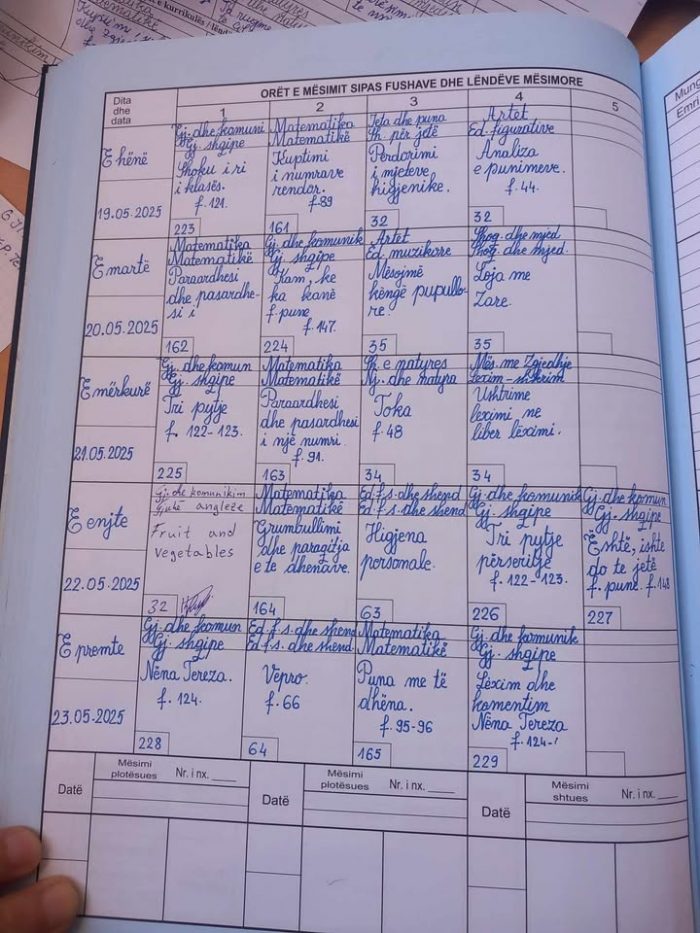 ORËT E MËSIMIT SIPAS FUSHAVE DHE LËNDËVE MËSIMORE
Dita dhe data
1
2
3
4
5
E hënë
19.05.2025
Gj. dhe komuni
Gj. shqipe
Shoku i ri
i klasës.
f. 121.
223
Matematika
Matematikë
Kuptimi
i numrave
rendor.
f.89
161
Jeta dhe puna
Sh. për jetë
Përdorimi
i mjeteve
higjenike.
32
Artet
Ed. figurative
Analiza
e punimeve.
f. 44.
32
E martë
20.05.2025
Matematika
Matematikë
Paraardhësi
dhe pasardhe-
si i
162
Gj. dhe komunik
Gj. shqipe
Kam, ke
ka kanë
f. pune
f. 147.
224
Artet
Ed. muzikore
Mësojmë
këngë pupullo-
re.
35
Shoq. dhe mjed
Shoq. dhe mjed.
Loja me
Zare.
35
E mërkurë
21.05.2025
Gj. dhe komun
Gj. shqipe
Tri pytje
f. 122-123.
225
Matematika
Matematikë
Paraardhesi
dhe pasardhesi
i një numri
f. 91.
163
Sh. e natyres
Nj. dhe natyra
Toka
f. 48
34
Mës. me Zgjedhje
Lexim-shkrim
Ushtrime
leximi ne
liber lëximi.
34
E enjte
22.05.2025
Gj. dhe komunikim
Gjuhë angleze
Fruit and
vegetables
32
Matematika
Matematikë
Grumbullimi
dhe paraqitja
e te dhënave.
164
Ed f.s. dhe shend
Ed f.s. dhe shend
Higjena
personale.
63
Gj. dhe komunik
Gj. shqipe
Tri pytje
përseritje
f. 122-123.
226
Gj. dhe komun
Gj. shqipe
Eshtë, ishte
do te jetë
f. pune. f. 148
227
E premte
23.05.2025
Gj. dhe komun
Gj. shqipe
Nëna Tereza.
f. 124.
228
Ed f.s. dhe shend
Ed f.s. dhe shend
Vepro.
f. 66
64
Matematika
Matematikë
Puna me të
dhëna.
f. 95-96
165
Gj. dhe komunik
Gj. shqipe
Lëxim dhe
komentim
Nëna Tereza
f. 124-
229
Datë
Mësimi plotësues
Nr. i nx. ____
Datë
Mësimi plotësues
Nr. i nx. ____
Datë
Mësimi shtues
Nr. i nx. ____